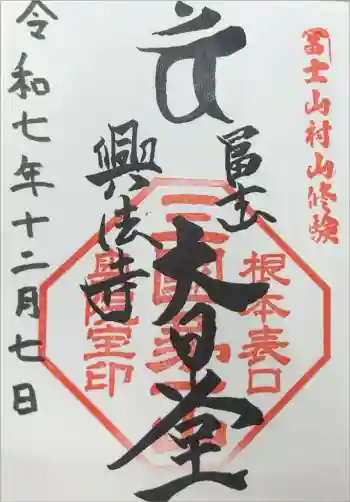 冨士山村山修験
冨士山
大日堂
興法寺
根本表口
三国第一山
令和七年十二月七日